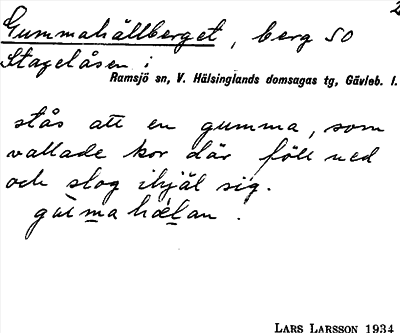 2
Gummahällberget, berg SO
Stagelåsen i
Ramsjö sn, V. Hälsinglands domsagas tg, Gävleb. l.
stås att en gumma, som
vallade kor där föll ned
och slog ihjäl sig.
LARS LARSSON 1934